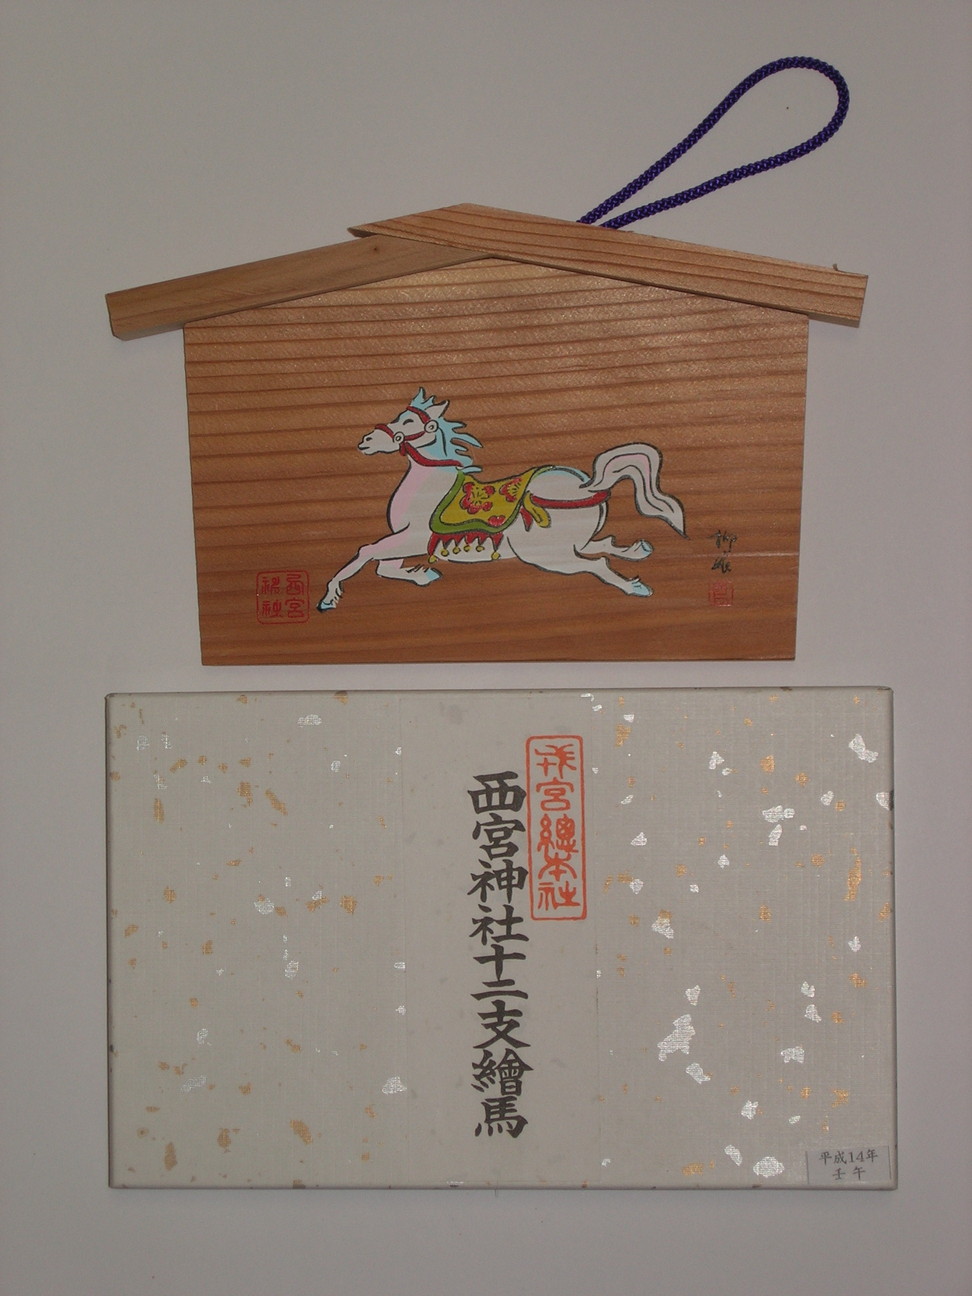 西宮
神社
戎宮總本社
西宮神社十二支繪馬
平成14年
壬午